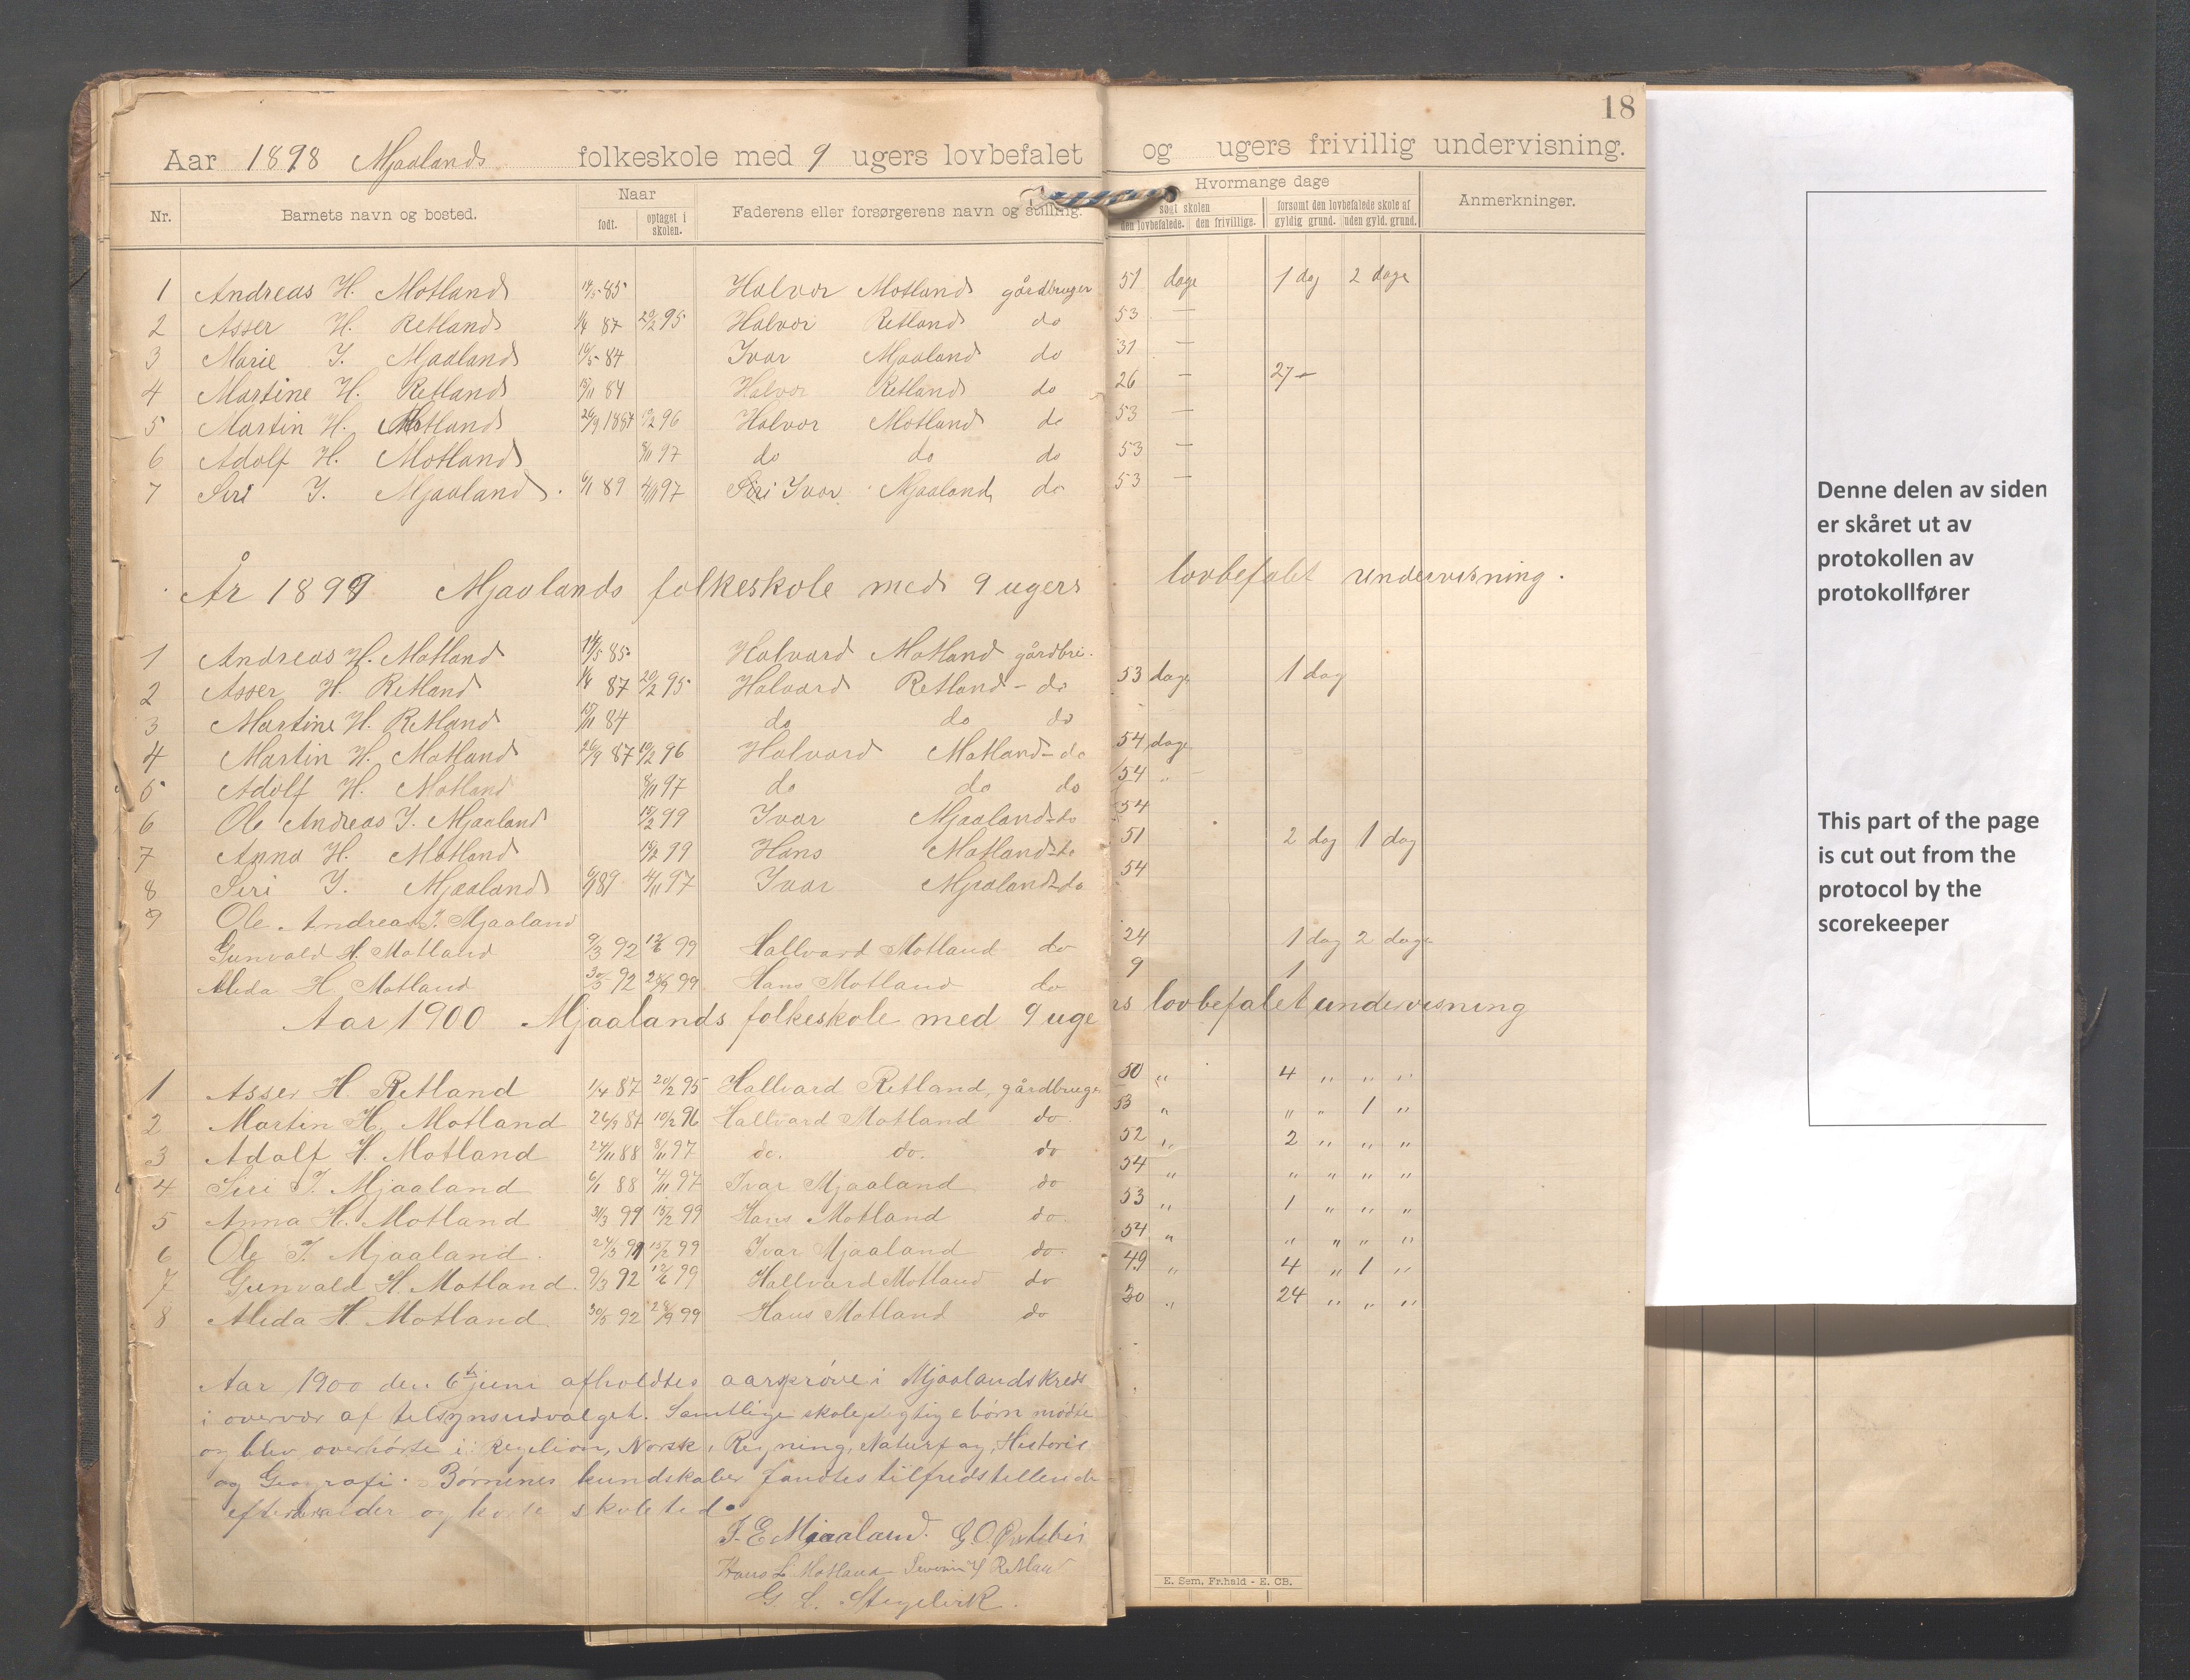 18
Aar 1898 Mjaalands folkeskole med 9 ugers lovbefalet og ugers frivillig undervisning.
Nr. Barnets navn og bosted. Naar født. optaget i skolen. Faderens eller forsørgerens navn og stilling. Hvormange dage søgt skolen den lovbefalede. den frivillige. forsømt den lovbefalede skole af gyldig grund. uden gyld. grund. Anmerkninger.
1 Andreas H. Motland 85 Halvor Motland gårdbruger 51 dage 1 dag 2 dage
2 Asser H. Retland 1/4 87 20/2 95 Halvor Retland do 53 —
3 Marie I. Mjaaland 16/5 84 Ivar Mjaaland do 31 —
4 Martine H. Retland 15/11 84 Halvor Retland do 26 — 27 —
5 Martin H. Motland 26/9 1887 10/2 96 Halvor Motland do 53 —
6 Adolf H. Motland 8/11 97 do do do 53 —
7 Siri I. Mjaaland 6/1 89 4/11 97 Ivar Mjaaland do 53 —
År 1899 Mjaalands folkeskole med 9 ugers lovbefalet undervisning.
1 Andreas H. Motland 14/5 85 Halvard Motland gårdbr.
2 Asser H. Retland 1/4 87 20/2 95 Halvard Retland - do 53 dage 1 dag
3 Martine H. Retland 15/11 84 do do do
4 Martin H. Motland 26/9 87 10/2 96 Halvard Motland - do 54 dage
5 Adolf H. Motland 8/11 97 do do do 54 "
6 Ole Andreas I. Mjaaland 15/2 99 Ivar Mjaaland - do 54
7 Anna H. Motland 15/2 99 Hans Motland - do 51 2 dag 1 dag
8 Siri I. Mjaaland 6/1 89 4/11 97 Ivar Mjaaland - do 54
9 Ole Andreas I. Mjaaland
Gunvald H. Motland 9/3 92 12/6 99 Hallvard Motland do 24 1 dag 2 dage
Alida H. Motland 30/5 92 28/9 99 Hans Motland do 9 1
Aar 1900 Mjaalands folkeskole med 9 ugers lovbefalet undervisning
1 Asser H. Retland 1/4 87 20/2 95 Hallvard Retland, gårdbruger 50 " 4 " " "
2 Martin H. Motland 26/9 87 10/2 96 Hallvard Motland do 53 " " " 1 "
3 Adolf H. Motland 27/11 88 8/11 97 do. do. do 52 " 2 " " "
4 Siri I. Mjaaland 6/1 88 4/11 97 Ivar Mjaaland do 54 " " " " "
5 Anna H. Motland 31/3 99 15/2 99 Hans Motland do. 53 " 1 " " "
6 Ole I. Mjaaland. 24/3 91 15/2 99 Ivar Mjaaland do. 54 " " " " "
7 Gunvald H. Motland. 9/3 92 12/6 99 Hallvard Motland do 49 " 4 " 1 "
8 Alida H. Motland 30/5 92 28/9 99 Hans Motland do 30 " 24 " " "
Aar 1900 den 6te juni afholdtes aarsprøve i Mjaalands kreds
i overvær af tilsynsudvalget. Samtlige skolepligtige børn mødte
og blev overhørte i Regelion, Norsk, Regning, Naturfag, Historie
og Geografi. Børnenes kundskaber fandtes tilfredstillende
efter alder og skoletid.
I. E. Mjaaland. G. O.
Hans L. Motland Severin H Retland
G L.
E. Sem, Fr.hald - E. CB.
Denne delen av siden
er skåret ut av
protokollen av
protokollfører
This part of the page
is cut out from the
protocol by the
scorekeeper